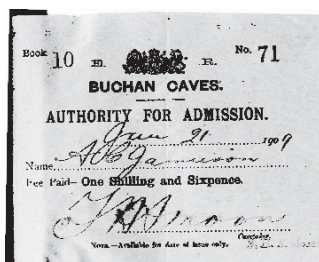 Book 10 E. R. No. 71
BUCHAN CAVES.
AUTHORITY FOR ADMISSION.
June 21 1909
Name A C Jamieson
Fee Paid—One Shilling and Sixpence.
Caretaker.
NOTE.—Available for date of issue only.